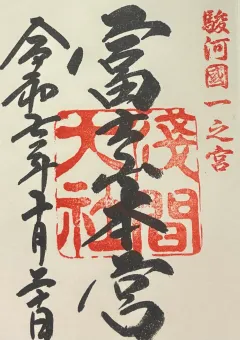 駿河國一之宮
富士本宮
淺間大社
令和七年十月二十日